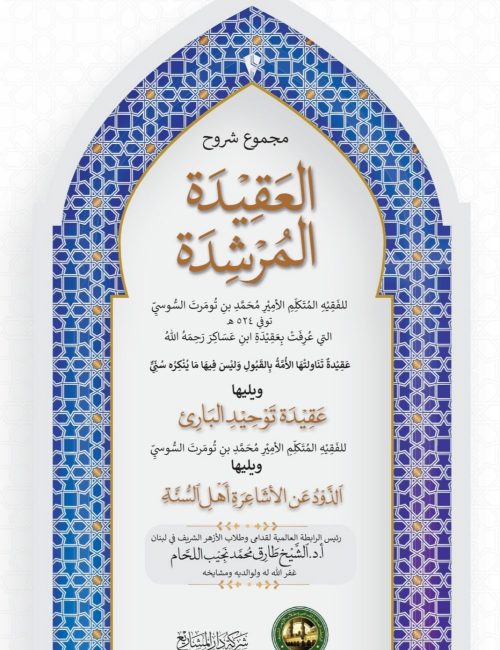 مجموع شروح
العَقِيْدَة
المُرْشِدَة
للفَقِيْهِ المُتَكَلِّمِ الأَمِيْرِ مُحَمَّدِ بنِ تُومَرتَ السُّوسِيِّ
توفي ٥٢٤ هـ
التي عُرِفَتْ بِعَقِيْدَةِ ابنِ عَسَاكِرَ رَحِمَهُ اللهُ
عَقِيْدَةٌ تَنَاوَلَتْهَا الأُمَّةُ بِالقَبُولِ وَلَيْسَ فِيهَا مَا يُنْكِرُه سُنِّيٌّ
ويليها
عَقِيْدَة تَوْحِيْدِ البَارِئ
للفَقِيْهِ المُتَكَلِّمِ الأَمِيْرِ مُحَمَّدِ بنِ تُومَرتَ السُّوسِيِّ
ويليها
الذَّوْدُ عَنِ الأَشَاعِرَةِ أَهْلِ السُّنَّةِ
رئيس الرابطة العالمية لقدامى وطلاب الأزهر الشريف في لبنان
أ.د. الشَّيْخ طَارِق مُحَمَّد نَجِيْب اللَّحَّام
غفر الله له ولوالديه ومشايخه
شركة دار المشاريع